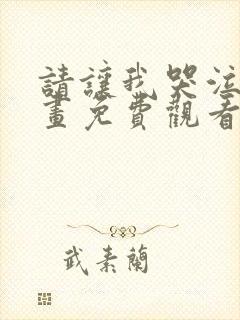 請讓我哭泣
畫免費觀看
武素蘭